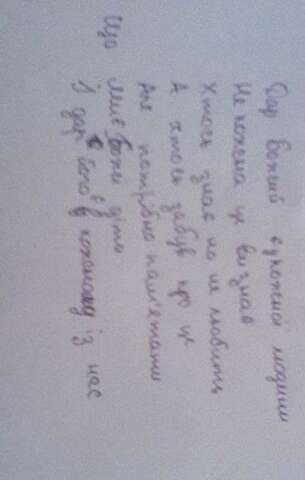 Дар Божий в кожної людини
Не кожена це визнав
Хтось знає но не любить
А хтось забув про це
Але потрібно пам'ятати
Що
Ми Божи діти
І дар Його в кожному із нас